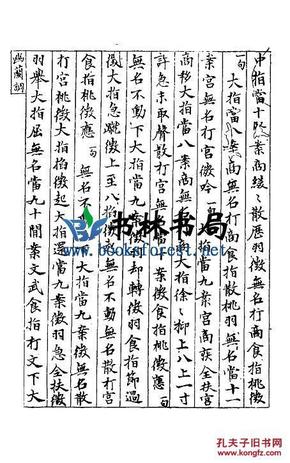 中指當十案商緩〻散歷羽徵無名打商食指挑徵
句 大指當八案商無名打商食指散挑羽無名當十一
案宮無名打宮徵 大指當九案宮商 全扶宮
商移大指當八案商無 大指徐〻抑上八上一寸
許急末取聲散打宮無名當 案徵食指挑徵 句
無名不動下大指當九案徵羽却轉徵羽食指節過
徵大指急蹴徵上至八指 無名不動無名散打宮
食指挑徵應 句 無名不 大指當九案徵無名散
打宮挑徵大指掐徵起大指還當九案徵羽急全扶徵
羽舉大指屈無名當九十間案文武食指打文下大
幽蘭調
书林书局
www.booksforest.net
孔夫子旧书网
www.kongfz.com